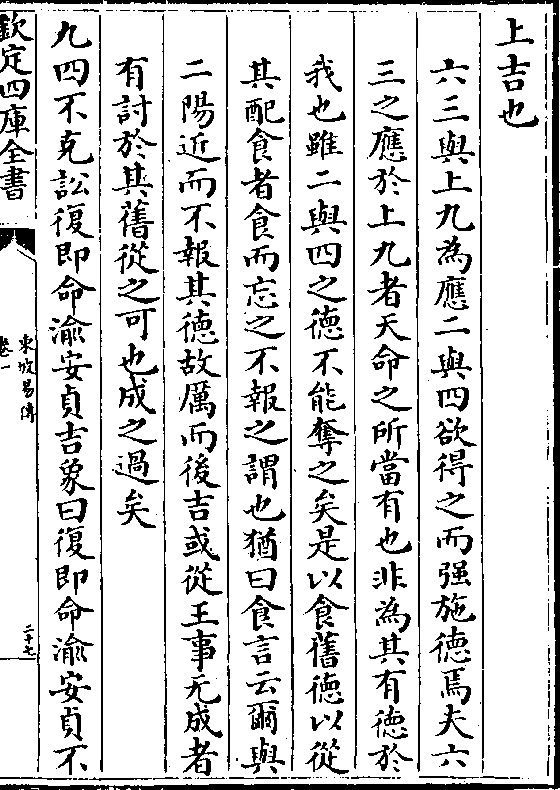 上吉也
六三與上九為應二與四欲得之而强施德焉夫六
三之應於上九者天命之所當有也非為其有德於
我也雖二與四之德不能奪之矣是以食舊德以從
其配食者食而忘之不報之謂也猶曰食言云爾與
二陽近而不報其德故厲而後吉或從王事无成者
有討於其舊從之可也成之過矣
九四不克訟復即命渝安貞吉象曰復即命渝安貞不
欽定四庫全書
東坡易傳
卷一
二十七